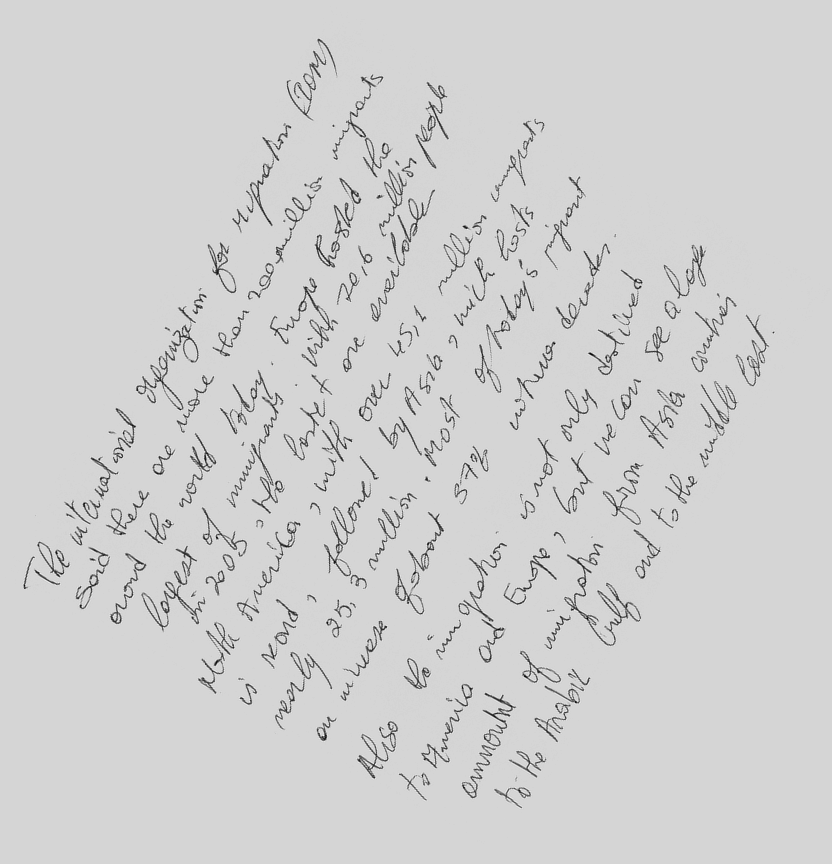 The international organization for migration (IOM)
said there are more than 200 million imigrants
around the world today. Europe hosted the
largest of immigrants. With 70,6 million people
in 2005, the lastest are available
North America, with over 45,1 million immigrants
is second, followed by Asia, wich hosts
nearly 25,3 million. Most of today's migrant
an increase of about 57% in three decades.
Also the immigration is not only destined
to America and Europe, but we can see a large
ammount of immigration from Asia countries
to the Arabic Gulf and to the middle East.